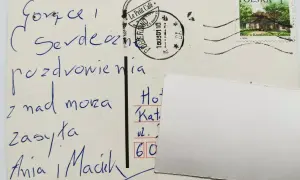 Gorące i
Serdeczne
pozdrowienia
z nad morza
zasyła
Ania i Maciek
POLSKA
Hot
Kat
60